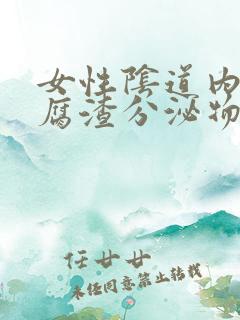 女性陰道内
腐渣分泌物
任廿廿
未经同意禁止转载